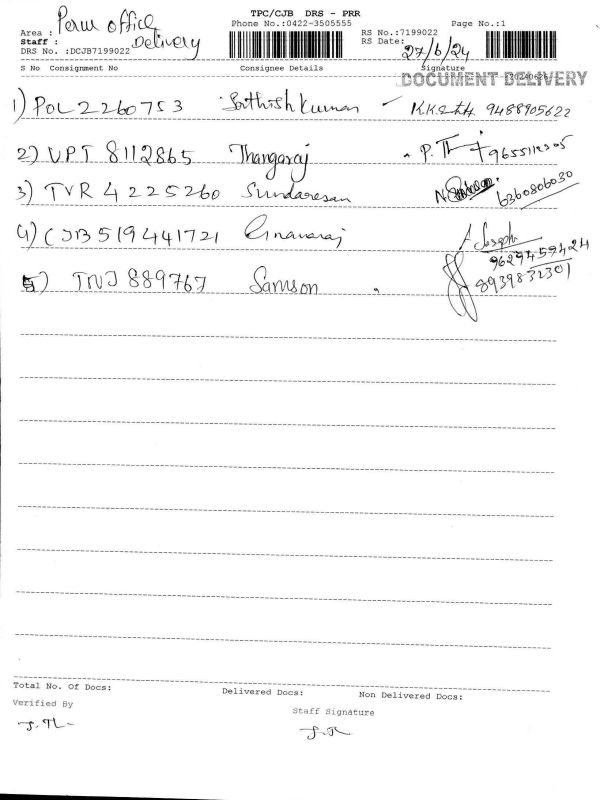 TPC/CJB DRS - PRR
Phone No.:0422-3505555
Page No.:1
Area : Perm office
Staff : Delivery
DRS No. :DCJB7199022
RS No.:7199022
RS Date: 27/6/24
S No Consignment No Consignee Details Signature
DOCUMENT DELIVERY
1) POL 2260753 Sathish kumar K.K. 9488905622
2) VPT 8112865 Thangaraj P. Th
3) TVR 4225260 Sundaresan N. 6360806030
4) CJB 519441721 Gnanaraj A. Joseph
9629459424
5) TNJ 889767 Samson 8939832301
Total No. Of Docs: Delivered Docs: Non Delivered Docs:
Verified By
Staff Signature